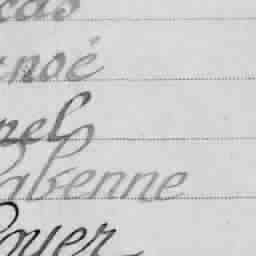 cas
noé
nel
abenne
oyer